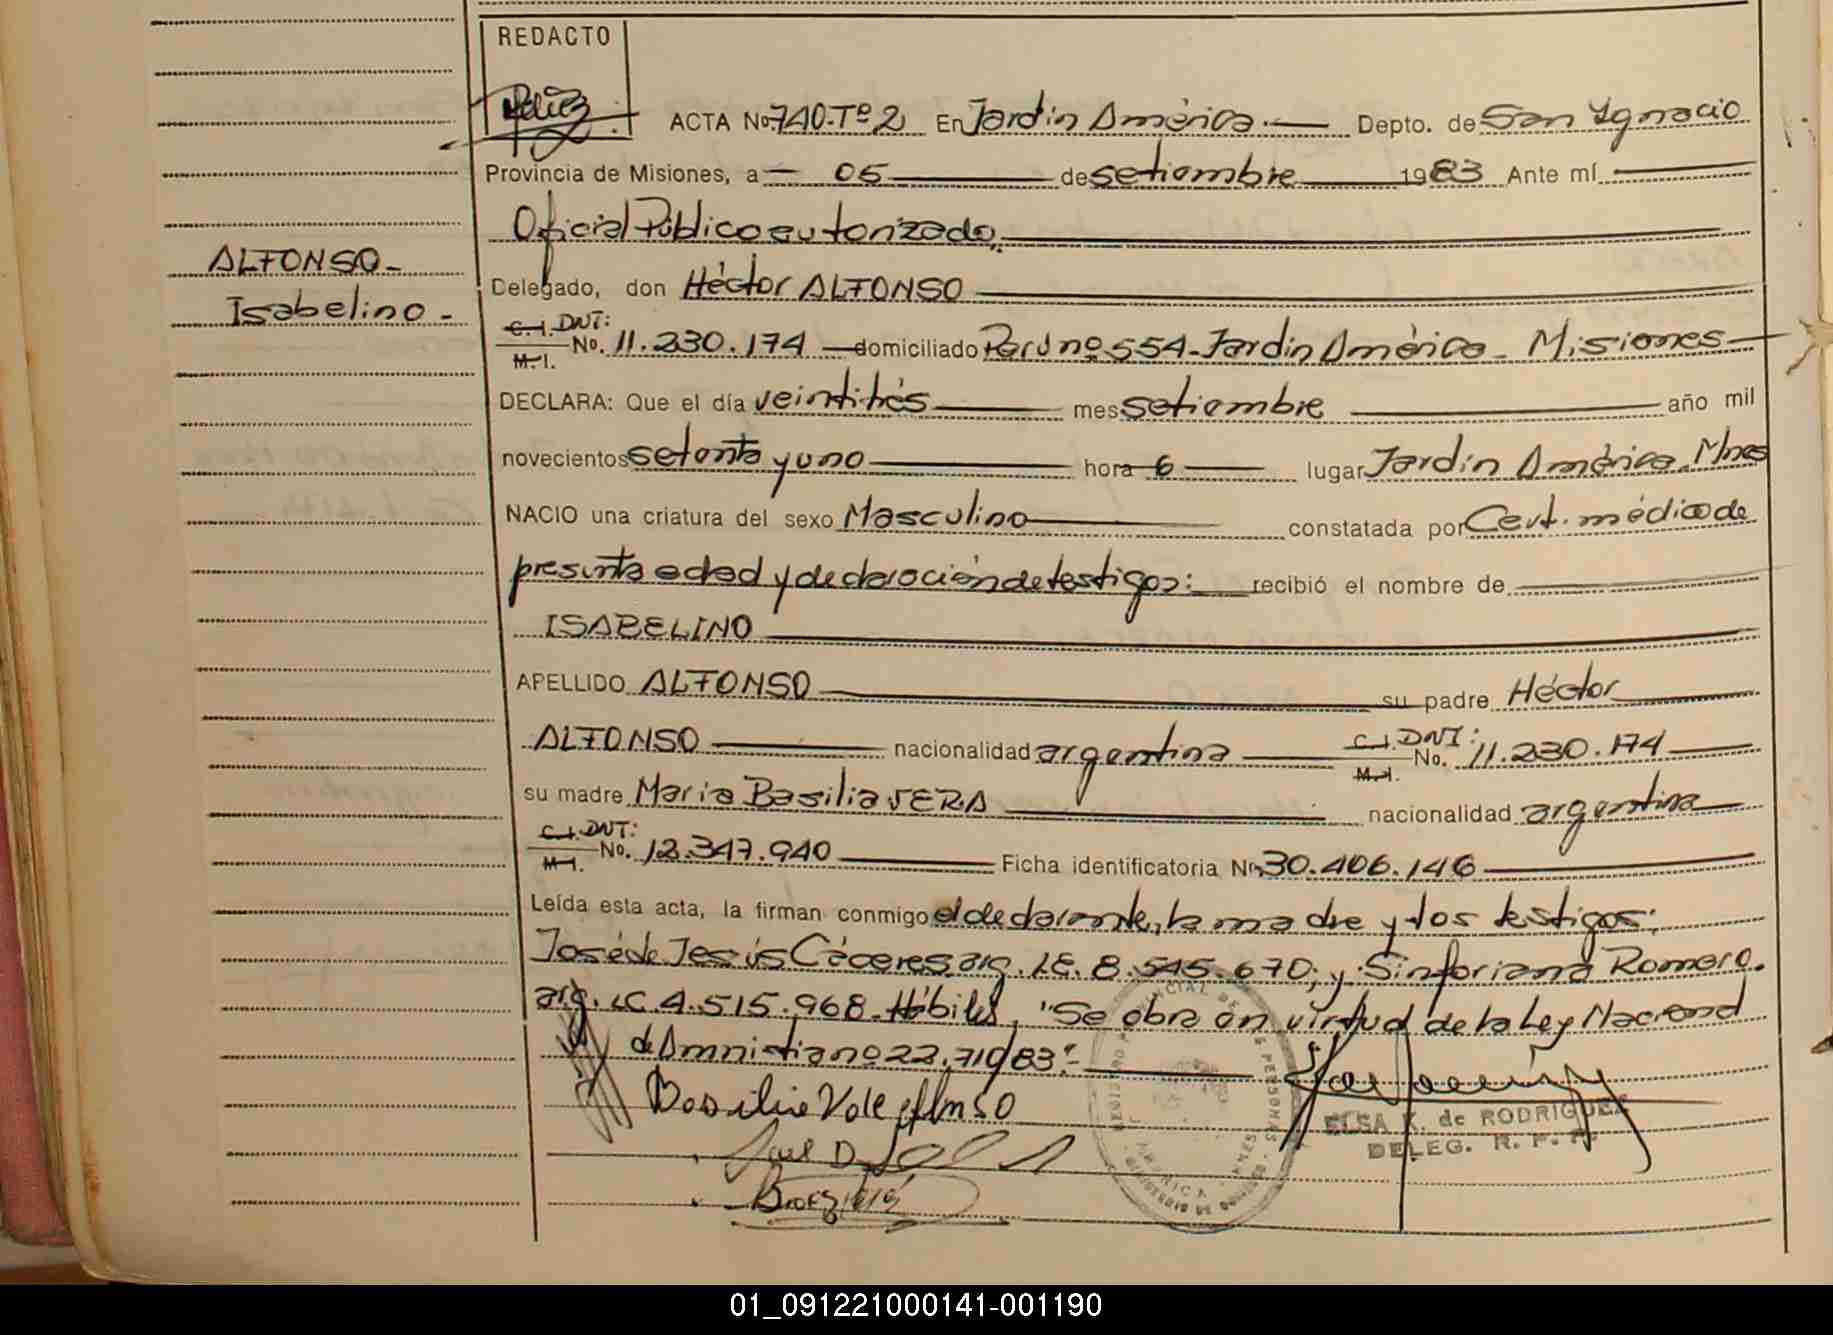 REDACTO
ACTA No 740-Tº2 En Jardín América Depto. de San Ygnacio
Provincia de Misiones, a 05 de setiembre 1983 Ante mí
Oficial Público autorizado.
ALFONSO- Delegado, don Héctor ALFONSO
Isabelino- C.I. DNI: No. 11.230.174 domiciliado Perú nº 554-Jardín América- Misiones
M.I.
DECLARA: Que el día veintitrés mes setiembre año mil
novecientos setenta y uno hora 6 lugar Jardín América-Mnes
NACIO una criatura del sexo Masculino constatada por Cert. médico de
presunta edad y declaración de testigos: recibió el nombre de
ISABELINO
APELLIDO ALFONSO su padre Héctor
ALFONSO nacionalidad argentina C.I. DNI: No. 11.230.174
M.I.
su madre María Basilia VERA nacionalidad argentina
C.I. DNI: No. 12.347.940 Ficha identificatoria No 30.406.146
M.I.
Leída esta acta, la firman conmigo el declarante, la madre y los testigos:
José de Jesús Cáceres arg. LE. 8.545.670; y Sinforiana Romero.
arg. LC. 4.515.968-Hábiles, "Se obra en virtud de la Ley Nacional
de Amnistia nº 22.710/83"-
ELSA K. de RODRIGUEZ
DELEG. R. P. P.
01_091221000141-001190